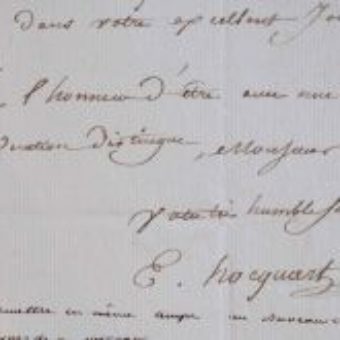 dans votre excellent Jou
l'honneur d'être avec une
distinguée, Monsieur
votre très humble S
E. hocquart
en même temps un nouveau